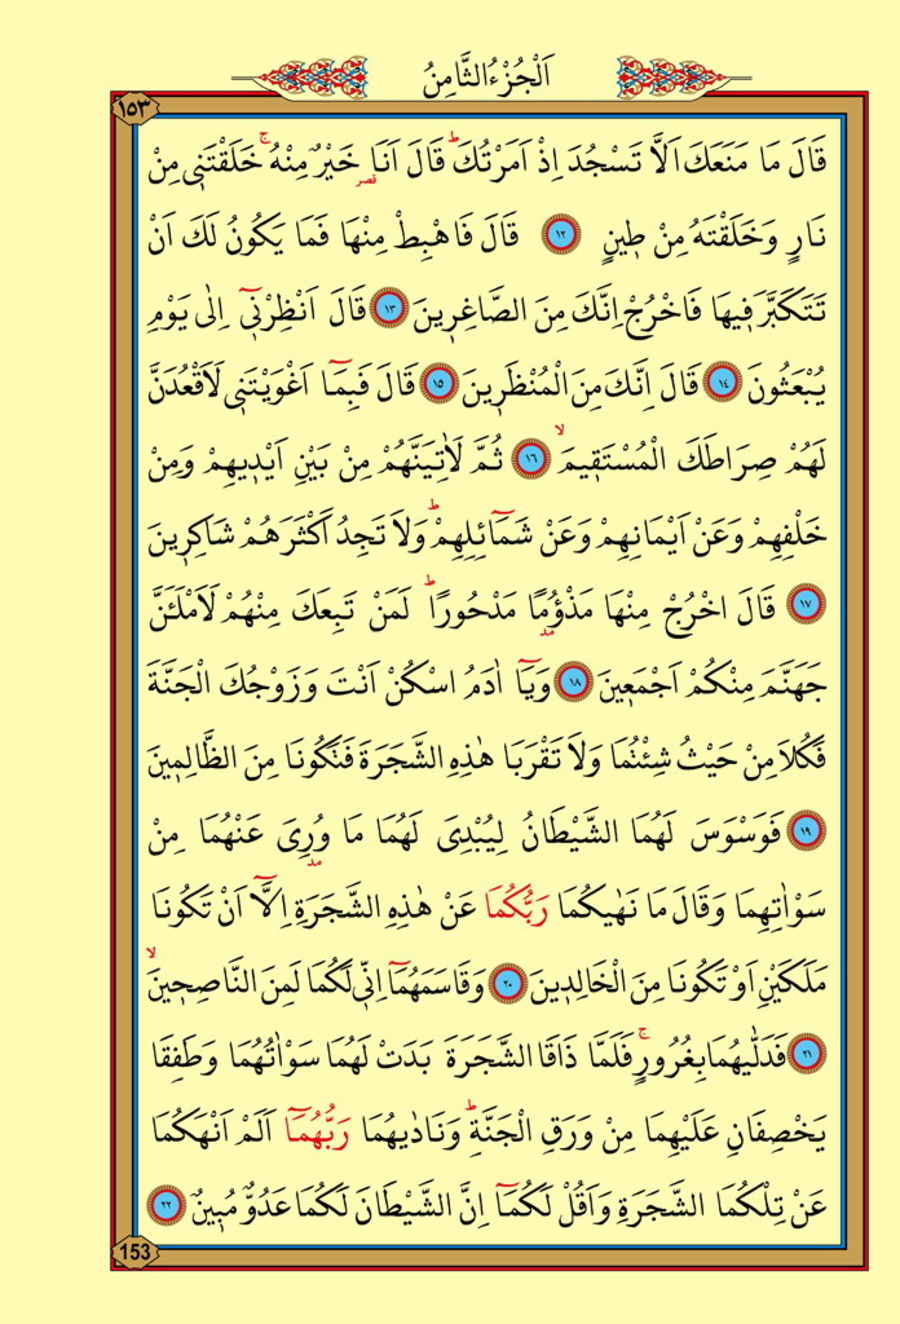 اَلْجُزْءُ الثَّامِنُ
١٥٣
قَالَ مَا مَنَعَكَ اَلَّا تَسْجُدَ اِذْ اَمَرْتُكَۜ قَالَ اَنَا۬ خَيْرٌ مِنْهُۚ خَلَقْتَن۪ى مِنْ
نَارٍ وَخَلَقْتَهُ مِنْ ط۪ينٍ ١٢ قَالَ فَاهْبِطْ مِنْهَا فَمَا يَكُونُ لَكَ اَنْ
تَتَكَبَّرَ ف۪يهَا فَاخْرُجْ اِنَّكَ مِنَ الصَّاغِر۪ينَ ١٣ قَالَ اَنْظِرْن۪ٓى اِلٰى يَوْمِ
يُبْعَثُونَ ١٤ قَالَ اِنَّكَ مِنَ الْمُنْظَر۪ينَ ١٥ قَالَ فَبِمَٓا اَغْوَيْتَن۪ى لَاَقْعُدَنَّ
لَهُمْ صِرَاطَكَ الْمُسْتَق۪يمَۙ ١٦ ثُمَّ لَاٰتِيَنَّهُمْ مِنْ بَيْنِ اَيْد۪يهِمْ وَمِنْ
خَلْفِهِمْ وَعَنْ اَيْمَانِهِمْ وَعَنْ شَمَٓائِلِهِمْۜ وَلَا تَجِدُ اَكْثَرَهُمْ شَاكِر۪ينَ
١٧ قَالَ اخْرُجْ مِنْهَا مَذْؤُ۫مًا مَدْحُورًاۜ لَمَنْ تَبِعَكَ مِنْهُمْ لَاَمْلَـَٔنَّ
جَهَنَّمَ مِنْكُمْ اَجْمَع۪ينَ ١٨ وَيَٓا اٰدَمُ اسْكُنْ اَنْتَ وَزَوْجُكَ الْجَنَّةَ
فَكُلَا مِنْ حَيْثُ شِئْتُمَا وَلَا تَقْرَبَا هٰذِهِ الشَّجَرَةَ فَتَكُونَا مِنَ الظَّالِم۪ينَ
١٩ فَوَسْوَسَ لَهُمَا الشَّيْطَانُ لِيُبْدِىَ لَهُمَا مَا وُ۫رِىَ عَنْهُمَا مِنْ
سَوْاٰتِهِمَا وَقَالَ مَا نَهٰيكُمَا رَبُّكُمَا عَنْ هٰذِهِ الشَّجَرَةِ اِلَّٓا اَنْ تَكُونَا
مَلَكَيْنِ اَوْ تَكُونَا مِنَ الْخَالِد۪ينَ ٢٠ وَقَاسَمَهُمَٓا اِنّ۪ى لَكُمَا لَمِنَ النَّاصِح۪ينَۙ
٢١ فَدَلّٰيهُمَا بِغُرُورٍۚ فَلَمَّا ذَاقَا الشَّجَرَةَ بَدَتْ لَهُمَا سَوْاٰتُهُمَا وَطَفِقَا
يَخْصِفَانِ عَلَيْهِمَا مِنْ وَرَقِ الْجَنَّةِۜ وَنَادٰيهُمَا رَبُّهُمَٓا اَلَمْ اَنْهَكُمَا
عَنْ تِلْكُمَا الشَّجَرَةِ وَاَقُلْ لَكُمَٓا اِنَّ الشَّيْطَانَ لَكُمَا عَدُوٌّ مُب۪ينٌ ٢٢
153